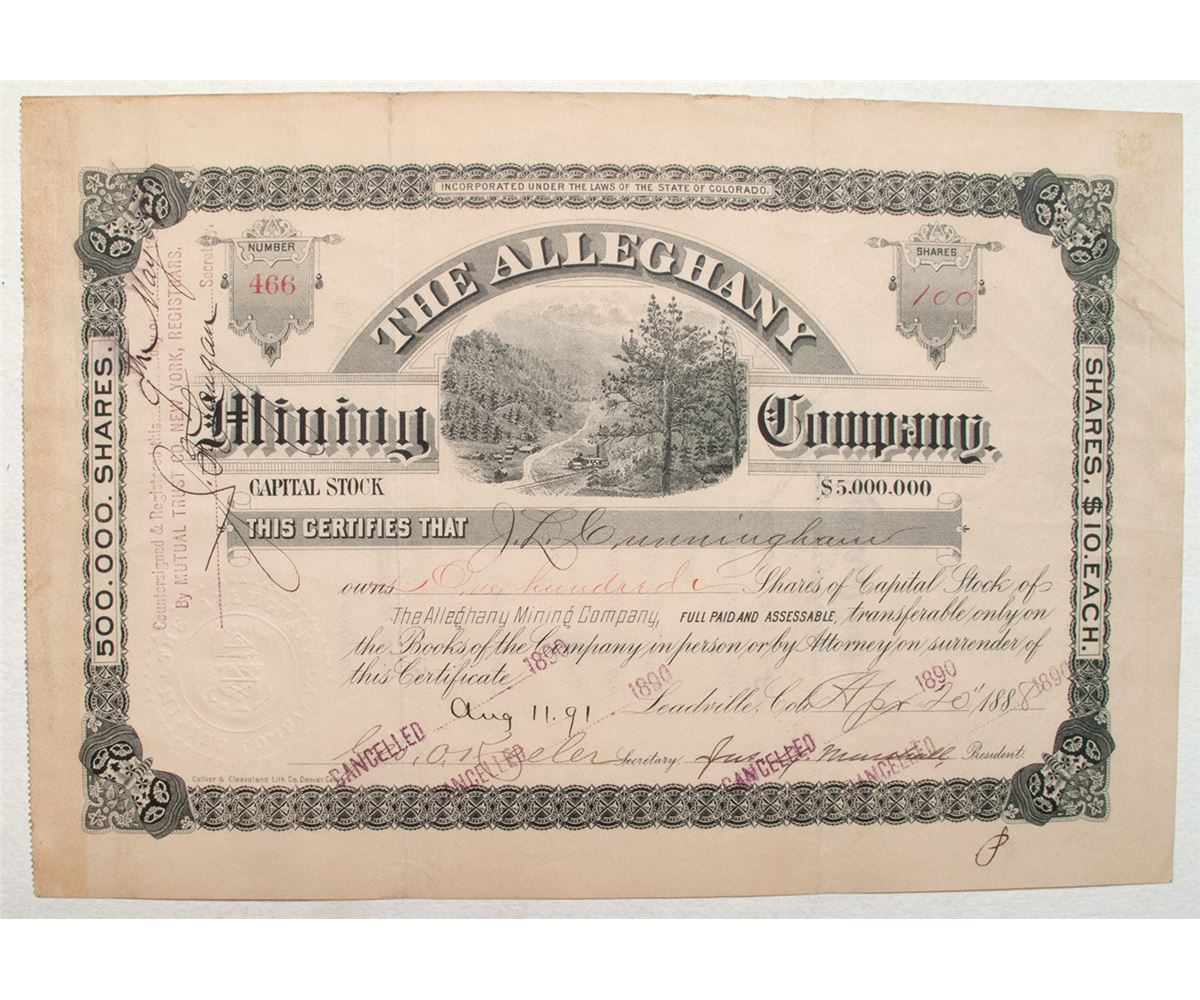 INCORPORATED UNDER THE LAWS OF THE STATE OF COLORADO.
NUMBER
466
SHARES
100
THE ALLEGHANY
Mining Company.
CAPITAL STOCK $5.000.000
THIS CERTIFIES THAT J. L. Cunningham
owns One hundred Shares of Capital Stock of
The Alleghany Mining Company, FULL PAID AND ASSESSABLE, transferable only on
the Books of the Company in person or by Attorney on surrender of
this Certificate
Aug 11.91 Leadville, Colo. Apr 20" 1888
Secretary. President.
1890
1890
1890
1890
CANCELLED
CANCELLED
CANCELLED
CANCELLED
Collier & Cleaveland Lith Co. Denver, Colo.
500.000. SHARES.
SHARES, $10. EACH.
Countersigned & Registered this
By MUTUAL TRUST CO. NEW YORK, REGISTRARS.
Secretary